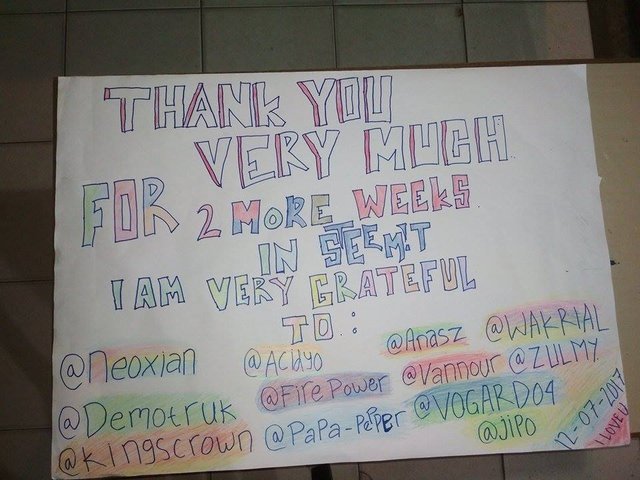 THANK YOU
VERY MUCH
FOR 2 MORE WEEKS
IN STEEM!T
I AM VERY GRATEFUL
TO:
@neoxian @Acidyo @Arasz @WAKRIAL
@Fire Power @Vannour @ZULMY
@Demotruk @PaPa-PePPER @VOGARD04
@kingscrown @JiPo
12-07-2017
I LOVE U